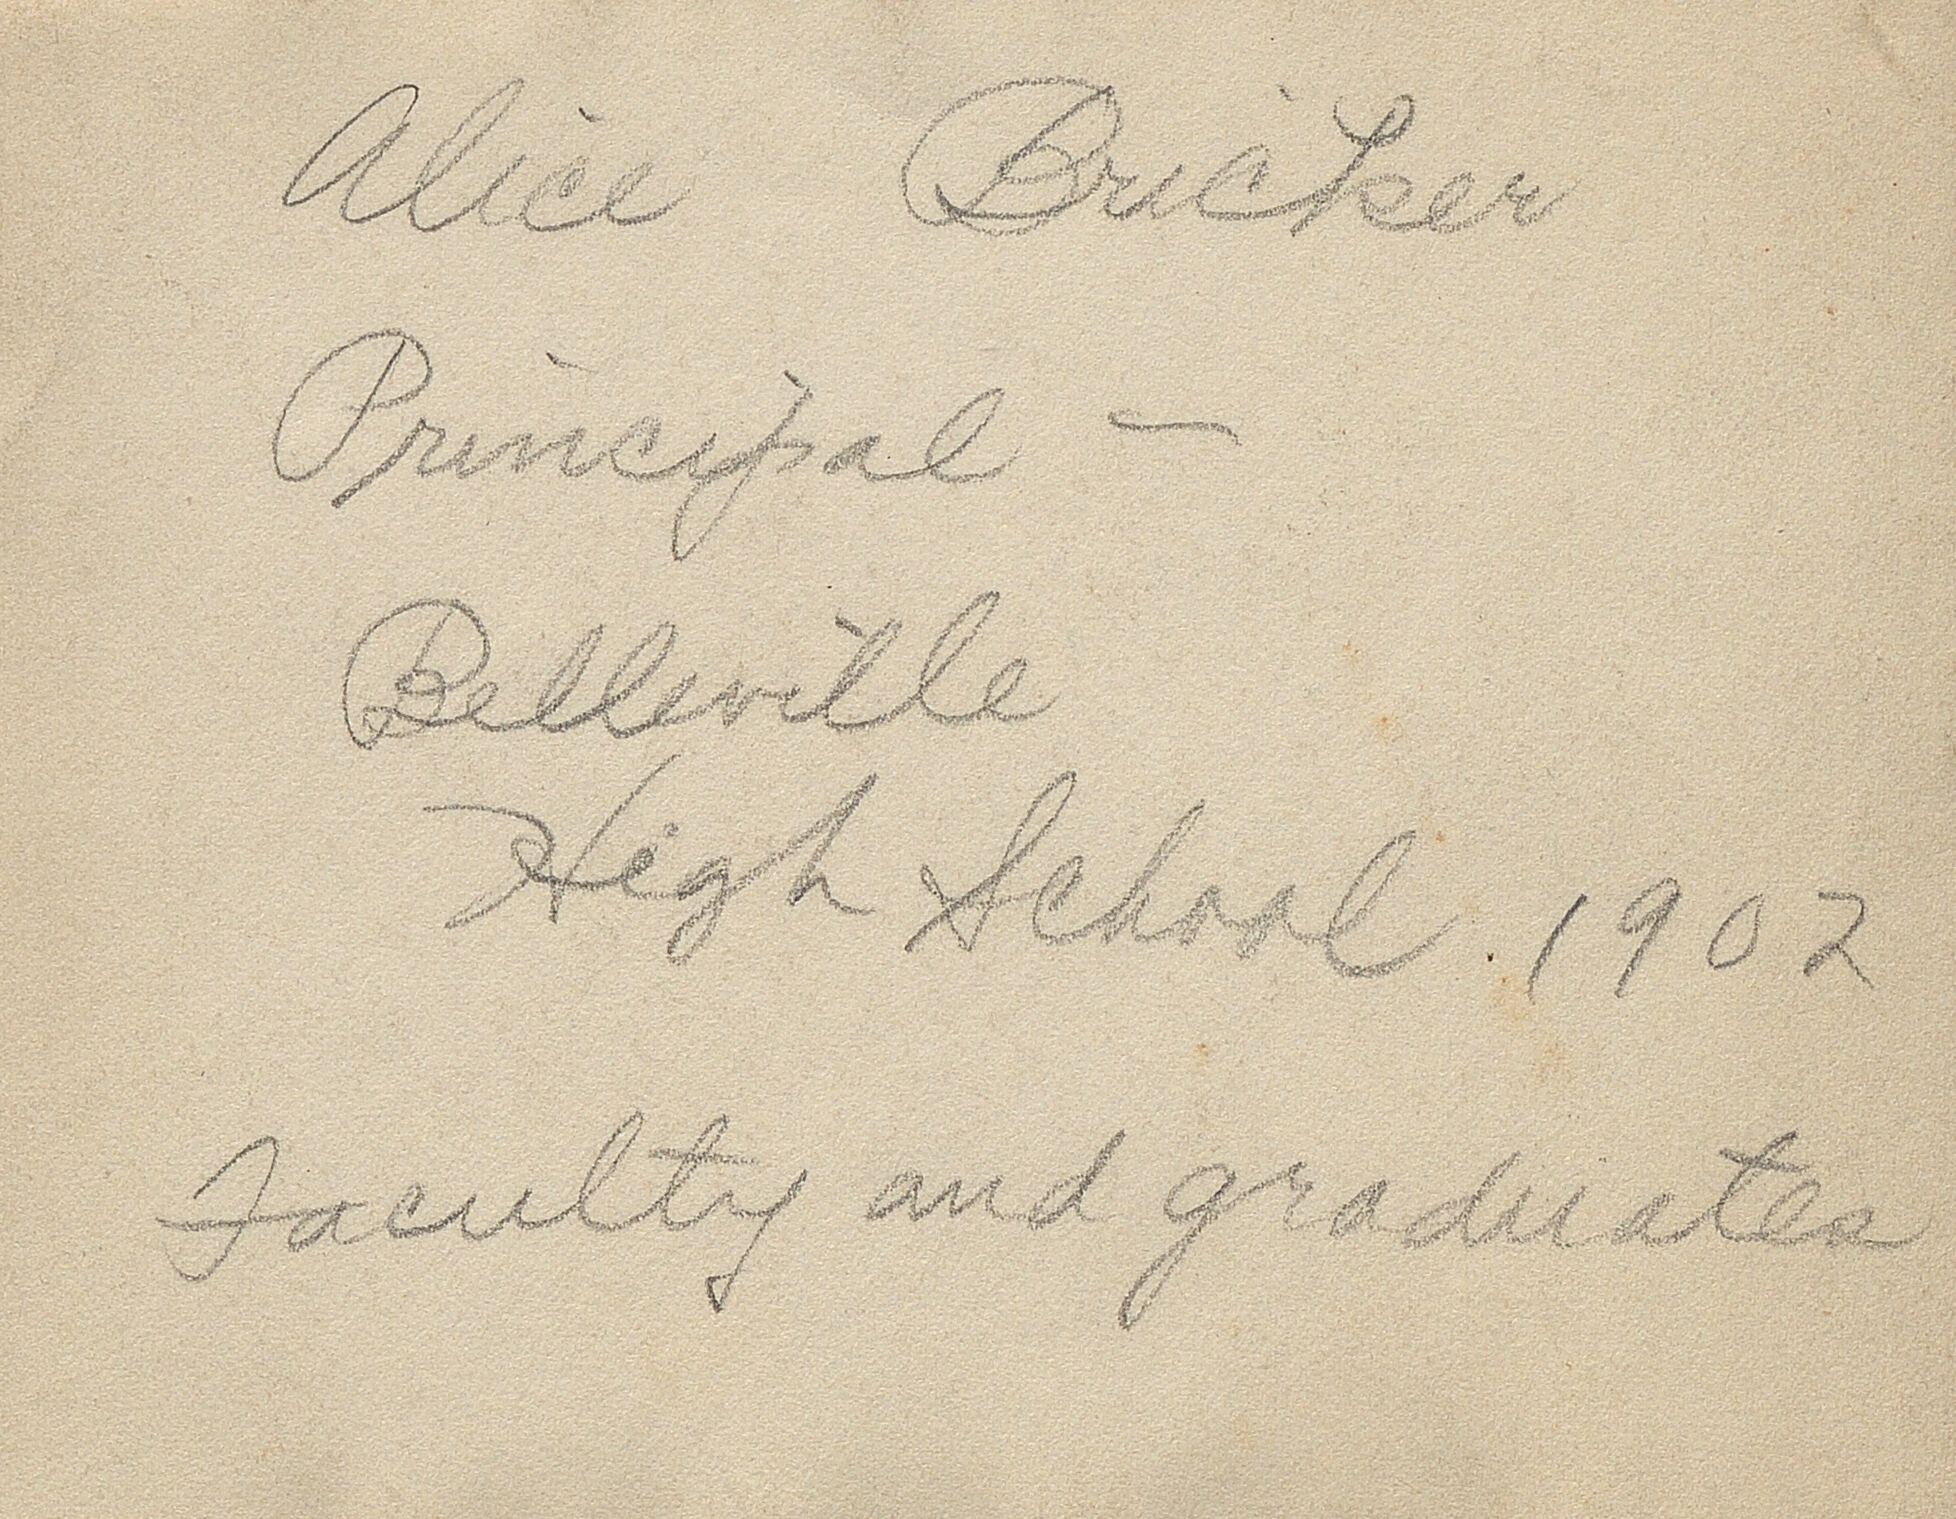 Alice Bricker
Principal -
Belleville
High School. 1902
Faculty and graduates